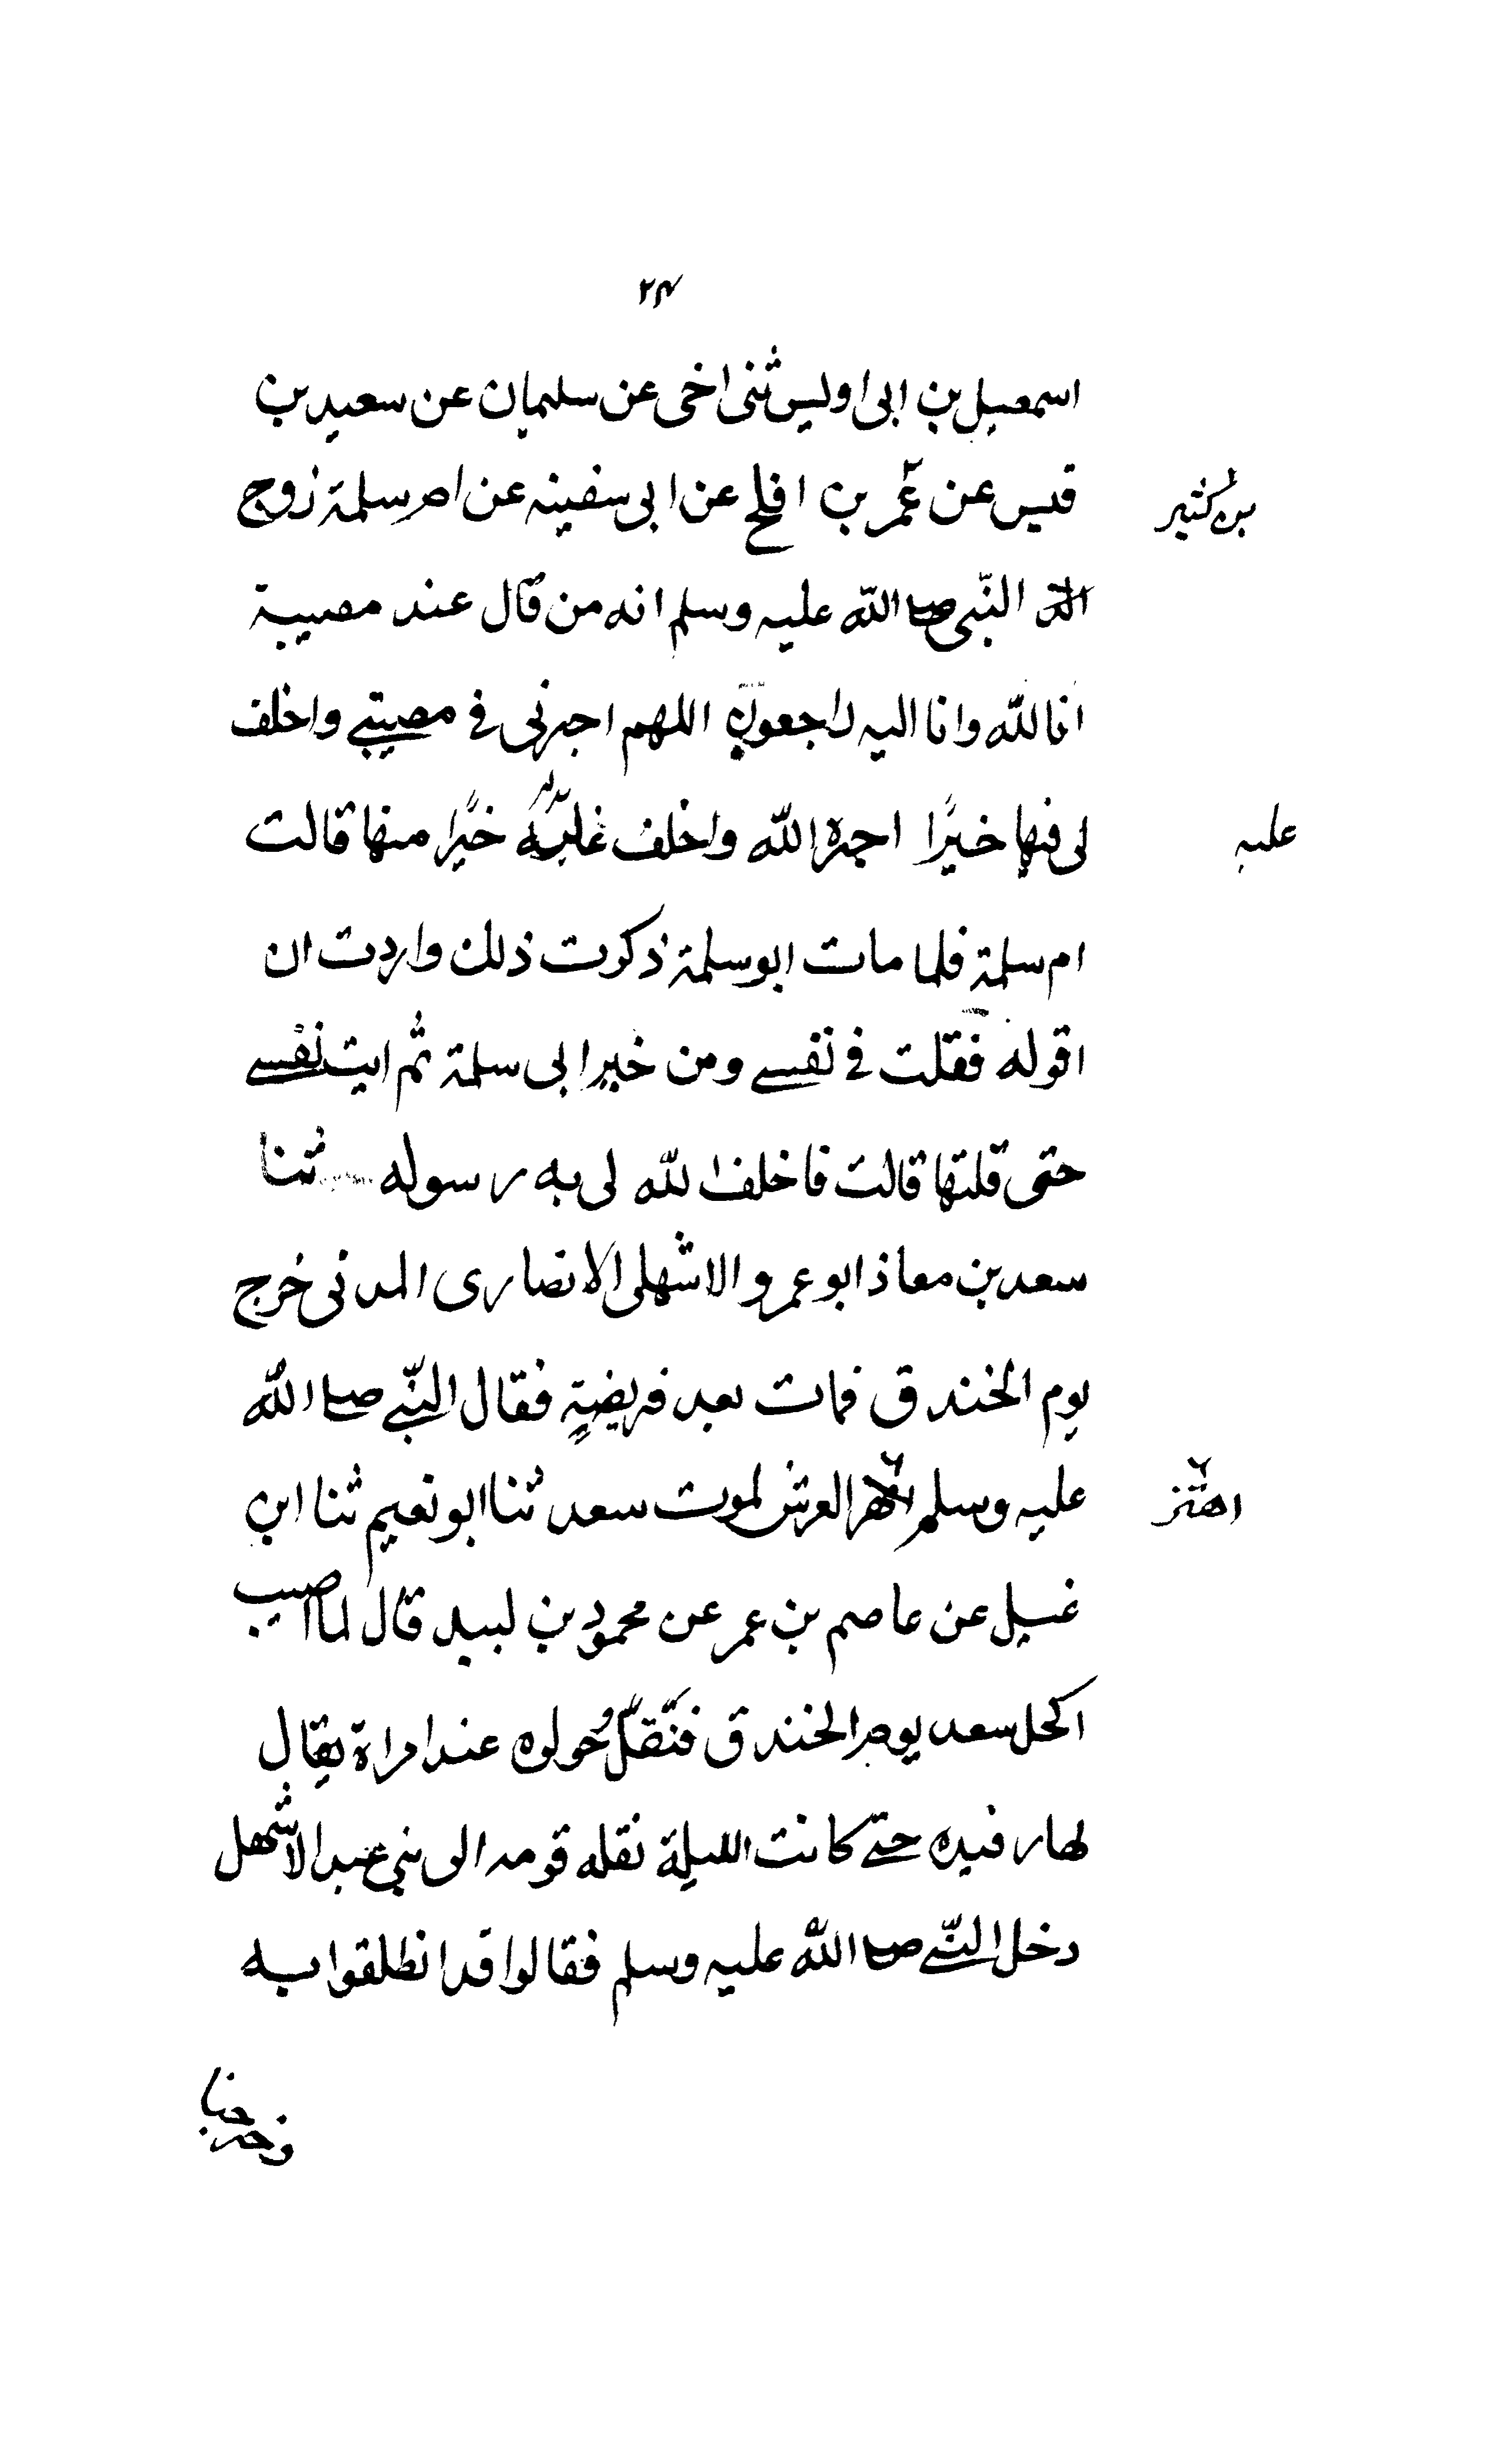 ٢٤
اسمعيل بن ابى اويس ثنى اخى عن سليمان عن سعيد بن
قيس عن عمر بن افلح عن ابى سفينه عن ام سلمة زوج
بن كثير
النبى صلى الله عليه وسلم انه من قال عند مصيبة
انا لله وانا اليه راجعون اللهم اجرنى فى مصيبتى واخلف
لى فيها خيرًا اجره الله واخلف عليه خيرًا منها قالت
عليه
ام سلمة فلما مات ابو سلمة ذكرت ذلك واردت ان
اقوله فقلت فى نفسى ومن خير ابى سلمة ثم ابت نفسى
حتى قلتها قالت فاخلف الله لى به رسوله ثنا
سعد بن معاذ ابو عمرو الاشهلى الانصارى المدنى خرج
يوم الخندق فمات بعد قريضة فقال النبى صلى الله
عليه وسلم اهتز العرش لموت سعد ثنا ابو نعيم ثنا ابن
اهتز
غسيل عن عاصم بن عمر عن محمود بن لبيد قال لما اصيب
اكحل سعد يوم الخندق فثقل حولوه عند امراة يقال
لها رفيده حتى كانت الليلة نقله قومه الى بنى عبد الاشهل
دخل النبى صلى الله عليه وسلم فقالوا قد انطلقوا به
وخرجنا